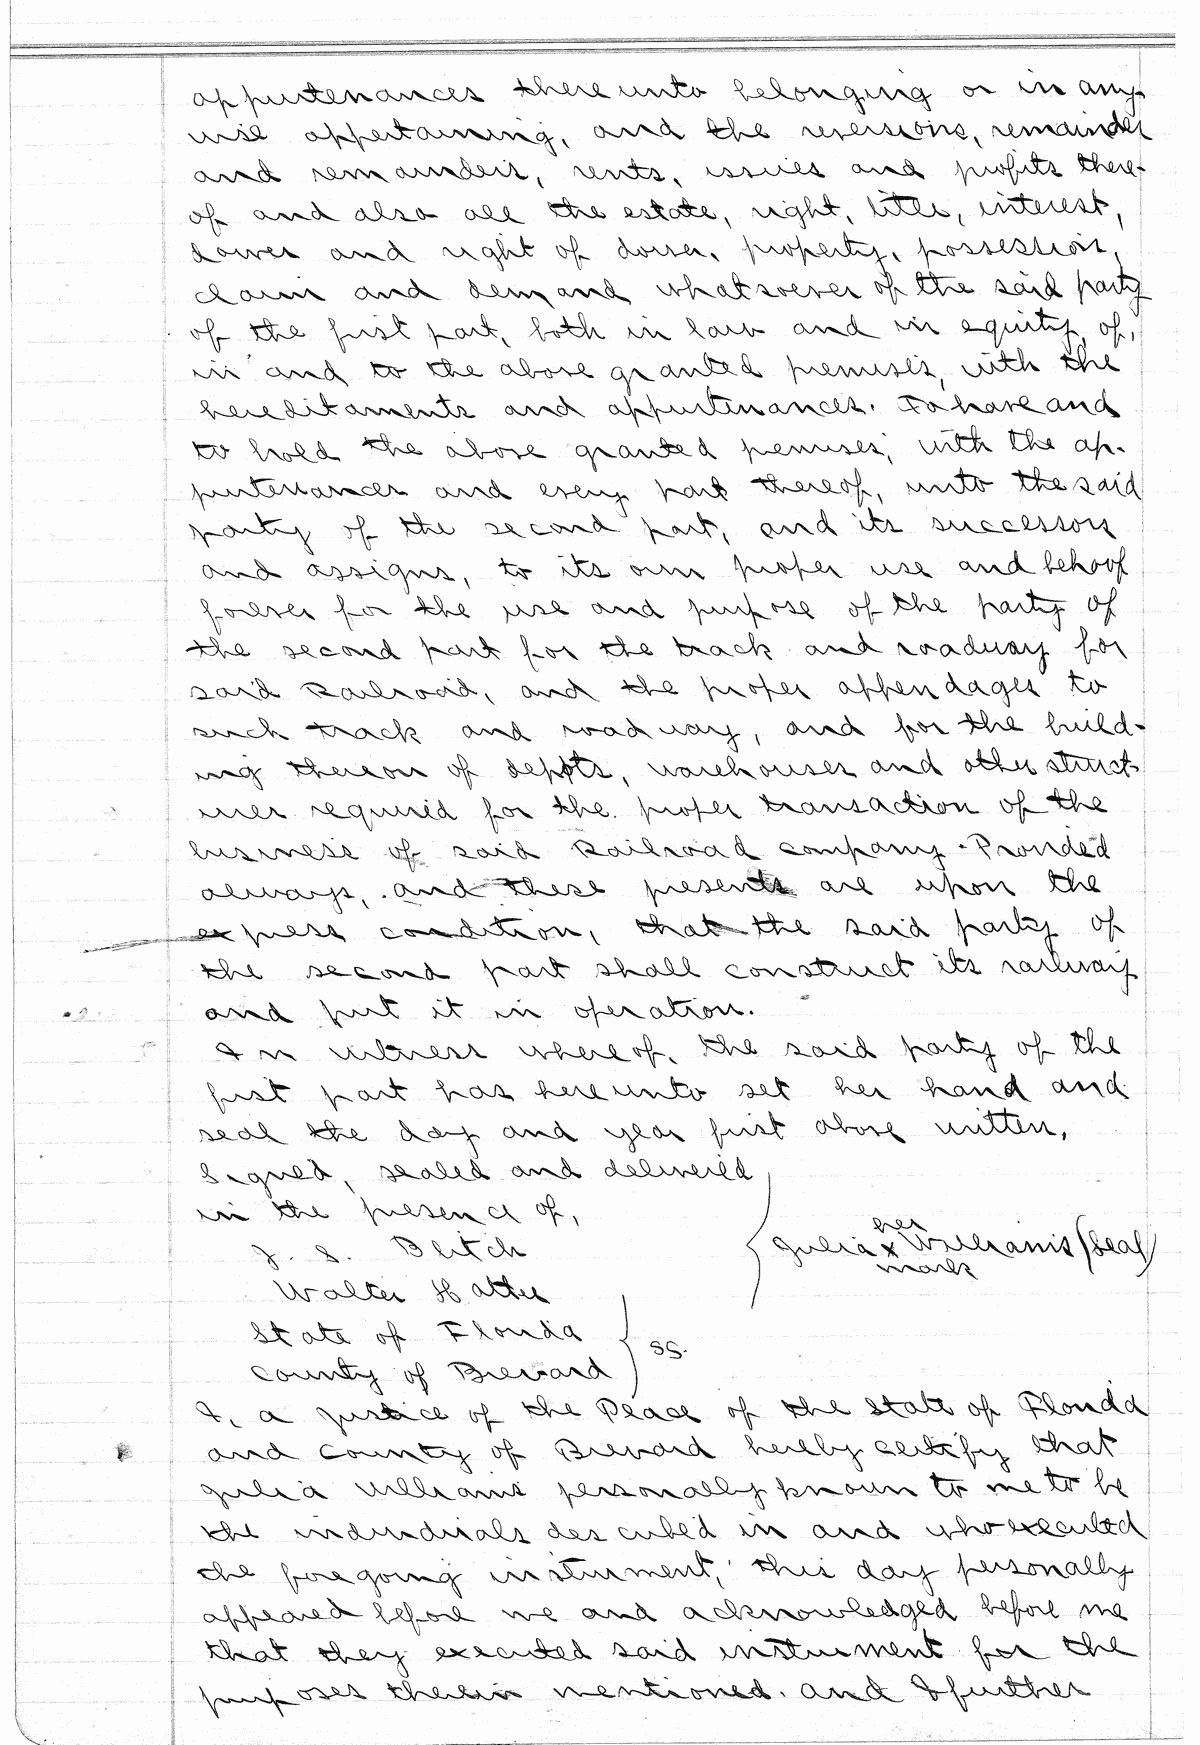 appurtenances thereunto belonging or in any-
wise appertaining, and the reversions, remainder
and remainders, rents, issues and profits there-
of and also all the estate, right, title, interest,
dower and right of dower, property, possession,
claim and demand whatsoever of the said party
of the first part, both in law and in equity, of,
in and to the above granted premises, with the
hereditaments and appurtenances. To have and
to hold the above granted premises, with the ap-
purtenances and every part thereof, unto the said
party of the second part, and its successors
and assigns, to its own proper use and behoof
forever for the use and purpose of the party of
the second part for the track and roadway for
said Railroad, and the proper appendages to
such track and roadway, and for the build-
ing thereon of depots, warehouses and other struct-
ures required for the proper transaction of the
business of said Railroad company. Provided
always, and these presents are upon the
express condition, that the said party of
the second part shall construct its railway
and put it in operation.
In witness whereof, the said party of the
first part has hereunto set her hand and
seal the day and year first above written,
Signed, sealed and delivered
in the presence of,
J. S. Blitch
her
Julia x Williams (Seal)
mark
Walter
State of Florida
County of Brevard } SS.
I, a Justice of the Peace of the State of Florida
and County of Brevard hereby certify that
Julia Williams personally known to me to be
the individuals described in and who executed
the foregoing instrument, this day personally
appeared before me and acknowledged before me
that they executed said instrument for the
purposes therein mentioned. and I further